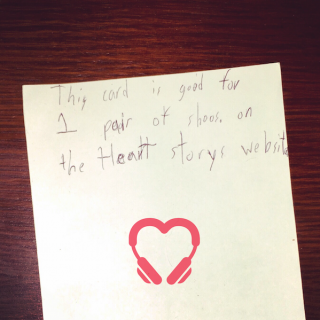 This card is good for
1 pair of shoos. on
the Heart storys website